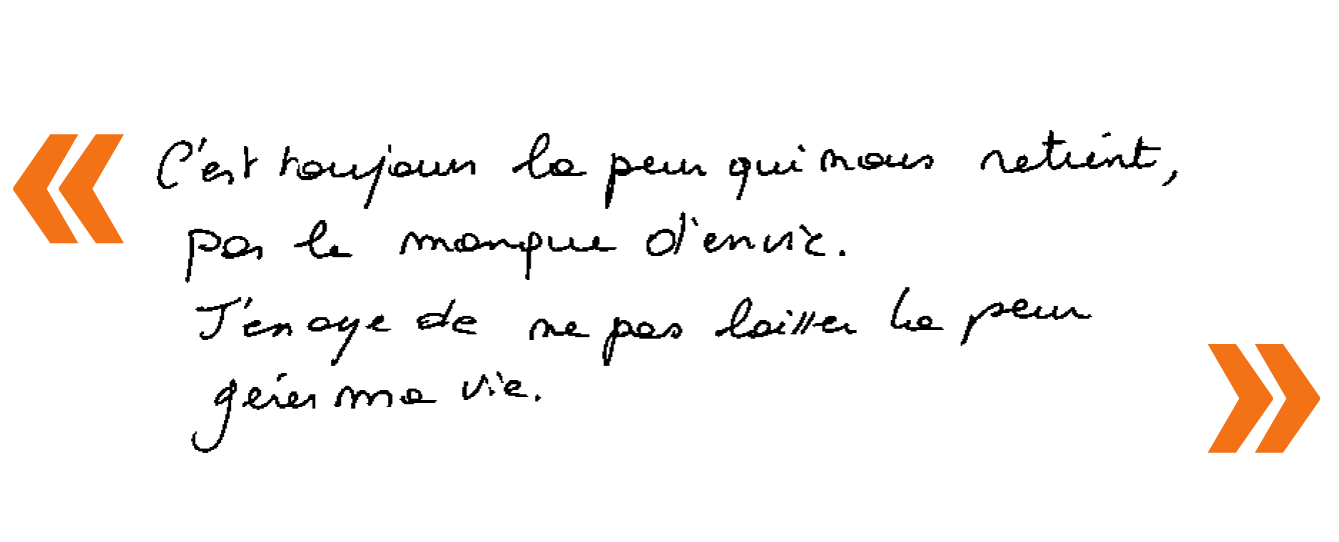 « C'est toujours la peur qui nous retient,
pas le manque d'envie.
J'essaye de ne pas laisser la peur
gérer ma vie. »